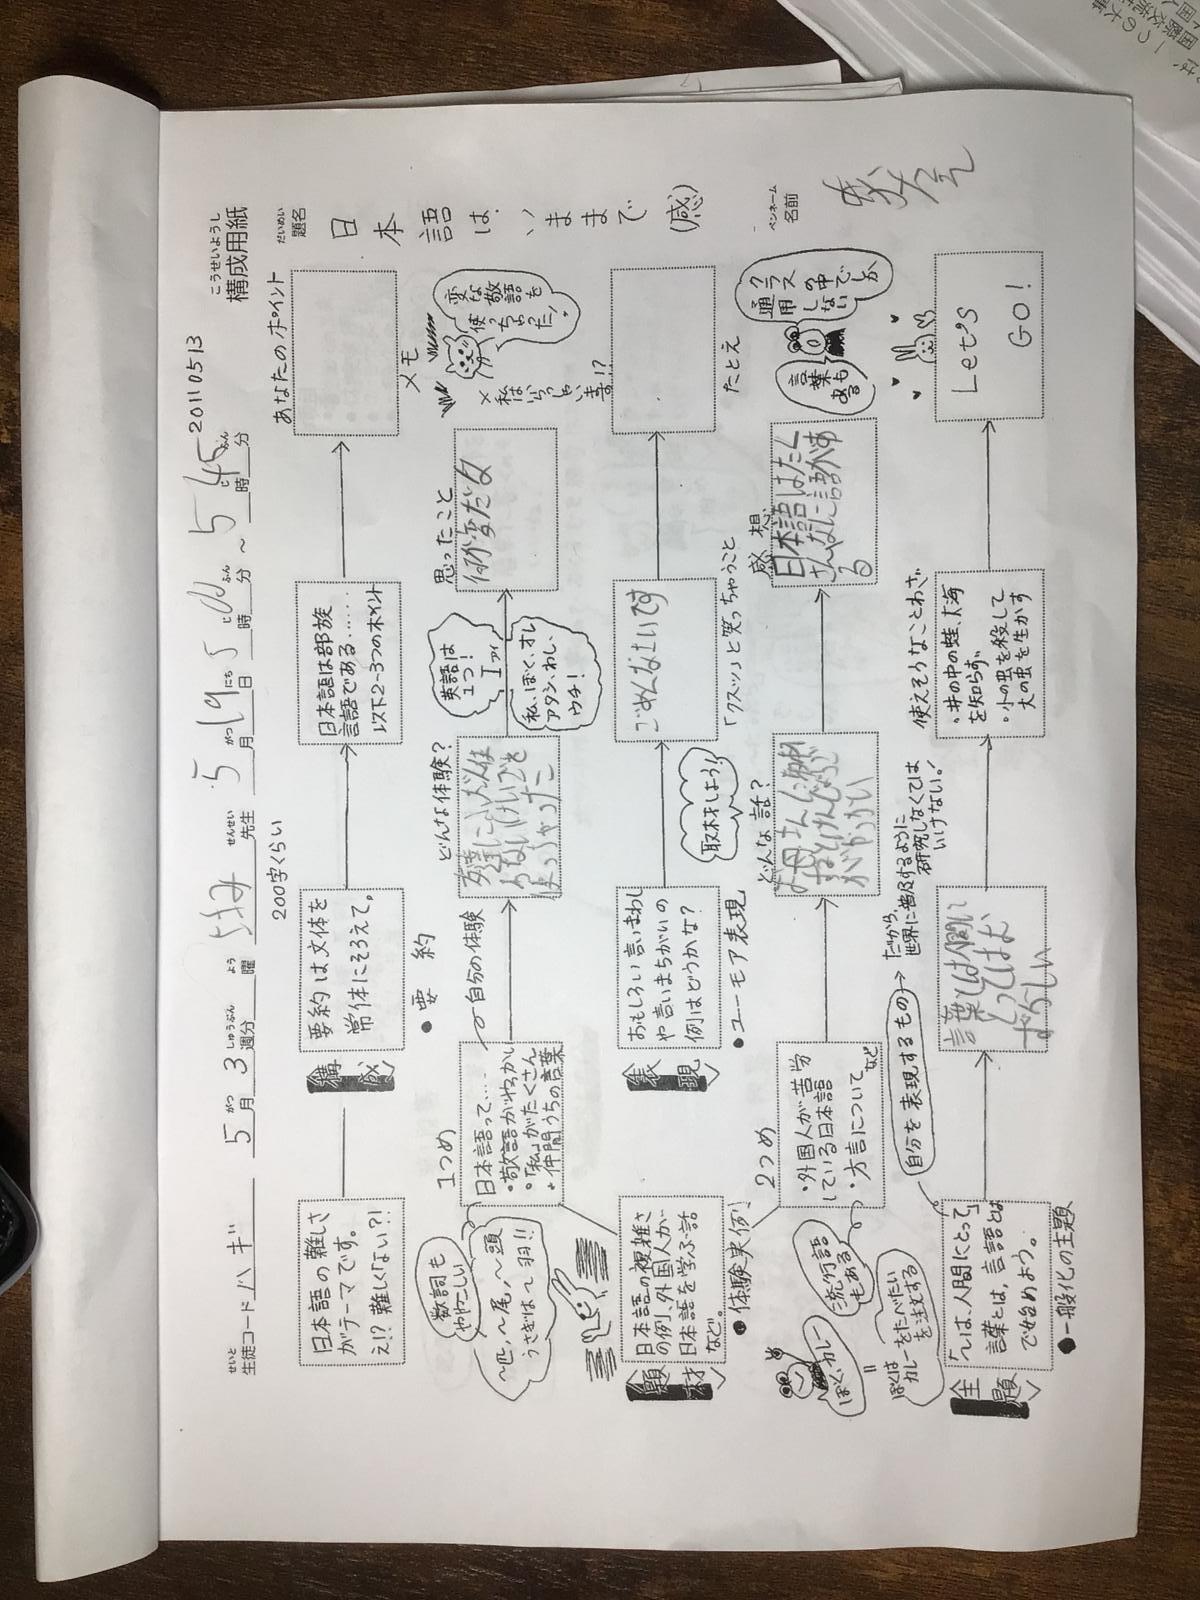 こうせいようし
構成用紙
20110513
せいと
生徒コード ハギ
5月3週分
がつ
しゅうぶん
よう
曜
せんせい
先生
5月19日5時
がつ
にち
じ
ふん
分
～
5時45分
じ
ふん
だいめい
題名
日本語は、いままで
(感)
ペンネーム
名前
200字くらい
あなたのポイント
日本語の難しさ
がテーマです。
え!?難しくない?!
〈構成〉
要約は文体を
常体にそろえて。
日本語は部族
言語である……
以下2~3つのポイント
●要約
メモ
1つめ
自分の体験
どんな体験?
思ったこと
数詞も
ややこしい
~匹、~尾、~頭
うさぎは~羽!!
日本語って…
・敬語がややこしい
・「私」がたくさん
・仲間うちの言葉
英語は
1つ!
I アイ
私、ぼく、オレ
アタシ、わし、
ウチ!
何か変だな
変な敬語を
使っちゃった!
×私は
いらっしゃい
ます!?
〈題材〉
日本語の複雑さ
の例、外国人が
日本語を学ぶ話
など。
●体験実例
〈表現〉
おもしろい言いまわし
や言いまちがいの
例はどうかな?
ごめんなさいです
●ユーモア表現
取材をしよう!
「クスッ」と笑っちゃうこと
たとえ
2つめ
どんな話?
感想
ぼく、カレー
=
ぼくは
カレーをたべたい
を注文する
流行語
もある
・外国人が苦労
している日本語
・方言について
など
日本語はたく
さんの
る
言葉も
ある
クラス
の中でしか
通用
しない
自分を表現するもの
→だから、
世界に普及するように
研究しなくては
いけない!
使えそうなことわざ
〈主題〉
「~は、人間にとって」
言葉とは、言語とは
で始めよう。
言葉とは人間に
とっては
・井の中の蛙、大海
を知らず
・小の虫を殺して
大の虫を生かす
Let's
GO!
●一般化の主題